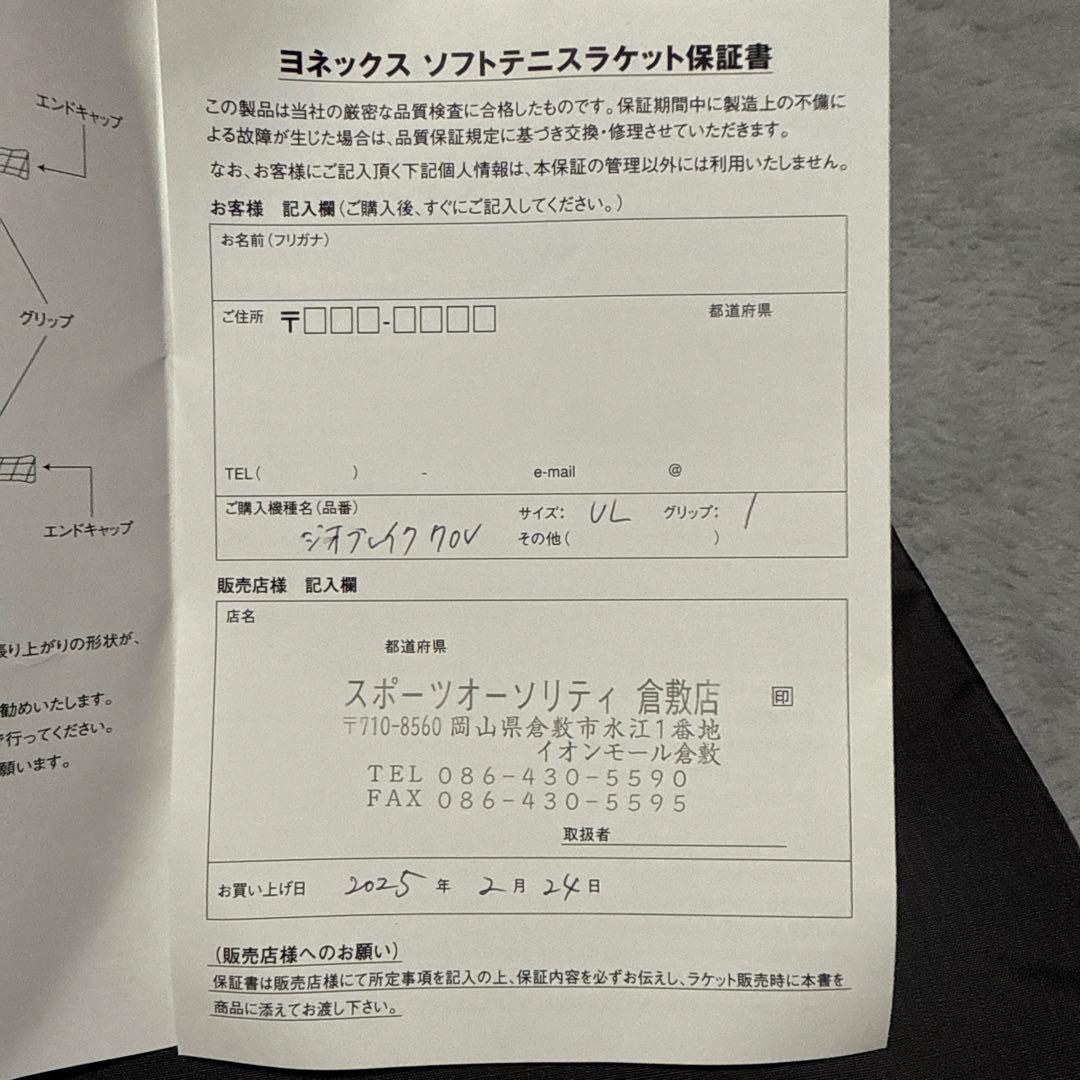 エンドキャップ
グリップ
エンドキャップ
張り上がりの形状が、
勧めいたします。
行ってください。
願います。
ヨネックス ソフトテニスラケット保証書
この製品は当社の厳密な品質検査に合格したものです。保証期間中に製造上の不備に
よる故障が生じた場合は、品質保証規定に基づき交換・修理させていただきます。
なお、お客様にご記入頂く下記個人情報は、本保証の管理以外には利用いたしません。
お客様 記入欄(ご購入後、すぐにご記入してください。)
お名前(フリガナ)
ご住所 〒□□□-□□□□ 都道府県
TEL( ) - e-mail @
ご購入機種名(品番) サイズ: UL グリップ: 1
ジオブレイク70V その他( )
販売店様 記入欄
店名
都道府県
スポーツオーソリティ 倉敷店 印
〒710-8560 岡山県倉敷市水江1番地
イオンモール倉敷
TEL 086-430-5590
FAX 086-430-5595
取扱者
お買い上げ日 2025 年 2 月 24 日
(販売店様へのお願い)
保証書は販売店様にて所定事項を記入の上、保証内容を必ずお伝えし、ラケット販売時に本書を
商品に添えてお渡し下さい。